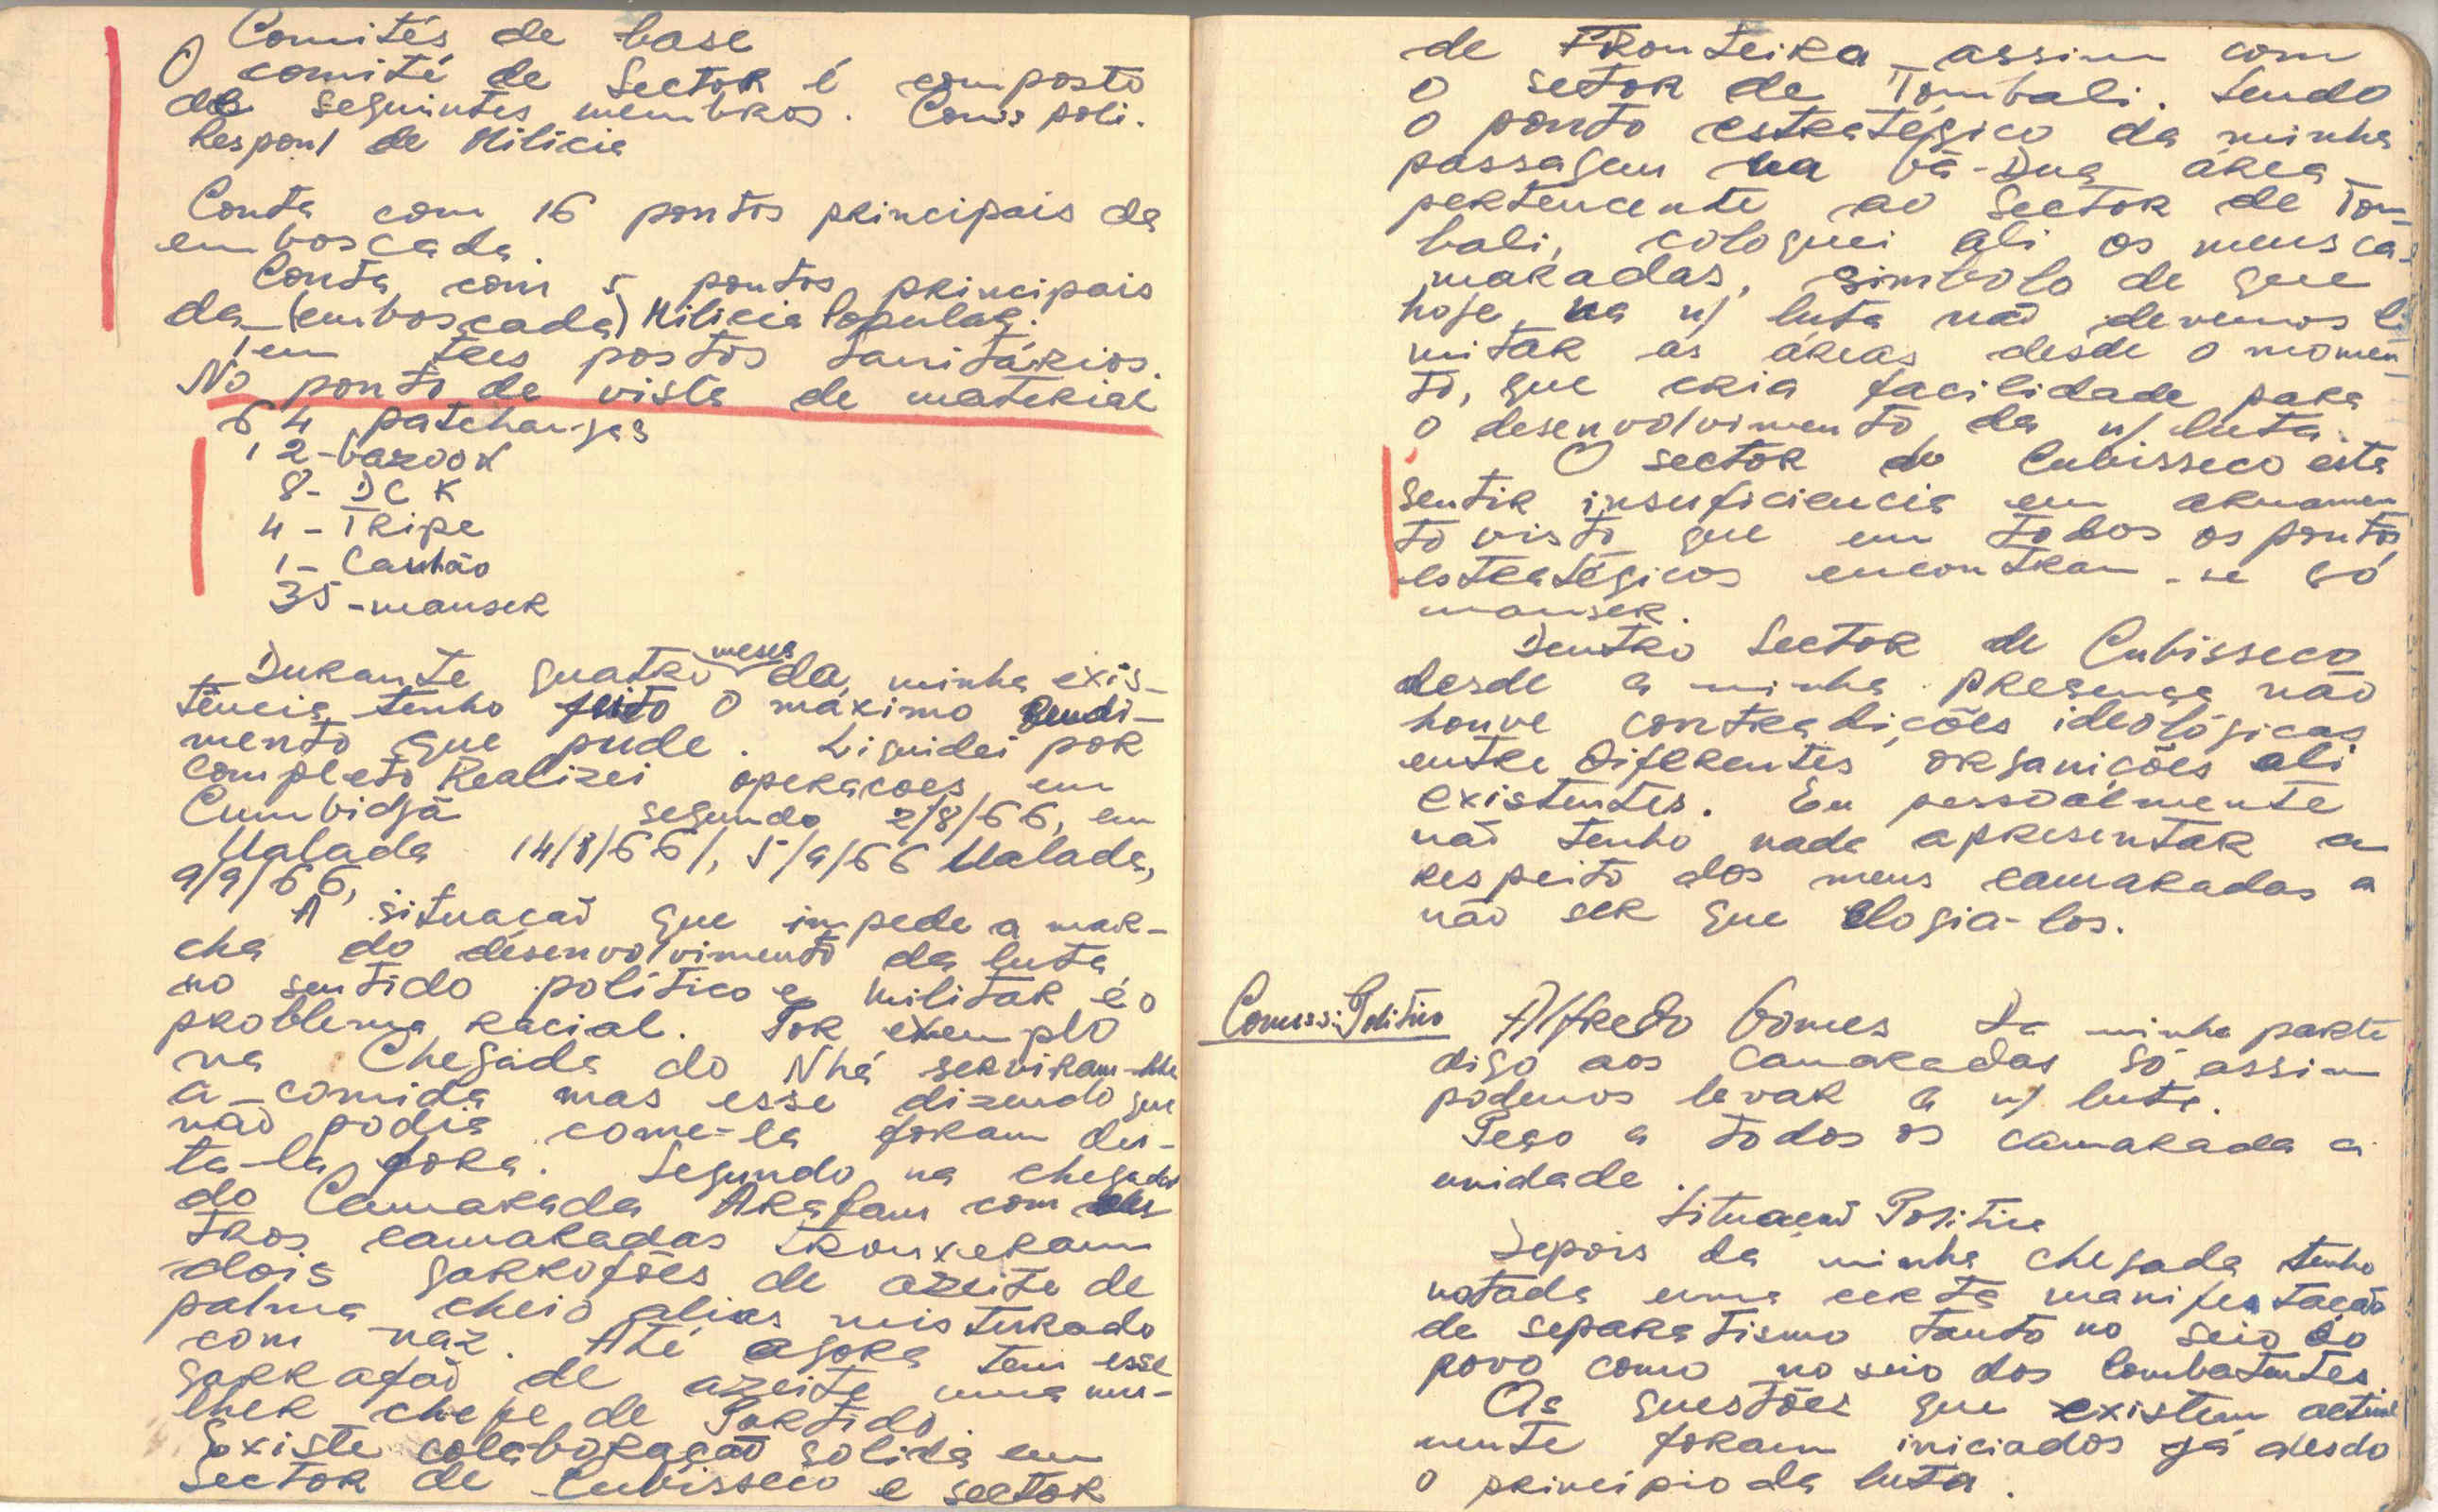 Comités de base
O comité de Sector é composto
de seguintes membros. Comss poli.
Respon/ de Milicia
Conta com 16 pontos principais da
emboscada.
Conta com 5 pontos principais
da (emboscada) Milicia Popular.
Tem tres postos sanitários.
No ponto de vista de material
64 patchangas
12-bazook
8- DCK
4- Tripe
1- Canhão
35-mauser
Durante quatro meses da minha exis-
tência tenho feito o máximo Rendi-
mento que pude. Liquidei por
completo Realizei operacoes em
Cumbidjã segundo 2/8/66, em
Ualada 14/8/66/, 5/9/66 Ualada,
9/9/66,
A situaçaõ que impede a mar-
cha do desenvolvimento da luta
no sentido político e militar é o
problema racial. Por exemplo
na Chegada do Nhá serviram-lhe
a comida mas esse dizendo que
naõ podia come-la foram dei-
ta-la fora. Segundo na chegada
do Camarada Arafam com
tros camaradas trouxeram
dois garrofões de azeite de
palma cheio alias misturado
com naz. Até agora tem esse
garrafaõ de azeite uma mu-
lher chefe de Partido.
Existe colaboraçaõ solida em
sector de Cubisseco e sector
de Fronteira assim com
o setor de Tombali. Sendo
o ponto estratégico da minha
passagem na Bã-Dua área
pertencente ao Sector de Tom-
bali, coloquei ali os meus ca-
maradas, simbolo de que
hoje na n/ luta naõ devemos li
mitar as áreas desde o momen-
to, que cria facilidade para
o desenvolvimento da n/ luta.
O sector do Cubisseco esta
sentir insuficiencia em armamen
to visto que em todos os pontos
estratégicos encontram-se só
mauser.
Dentro Sector de Cubisseco
desde a minha presença não
houve contradições ideológicas
entre diferentes organições ali
existentes. Eu pessoalmente
naõ tenho nada apresentar a
respeito dos meus camaradas a
não ser que elogia-los.
Comiss: Politico Alfredo Gomes Da minha parte
digo aos Camaradas só assim
podemos levar a n/ luta.
Peço a todos os camarada a
unidade.
Situaçaõ Politica
Depois da minha chegada tenho
notada uma certa manifestaçaõ
de separatismo tanto no seio do
povo como no seio dos Combatentes
As questões que existem actual
mente foram iniciados já desdo
o principio da luta.